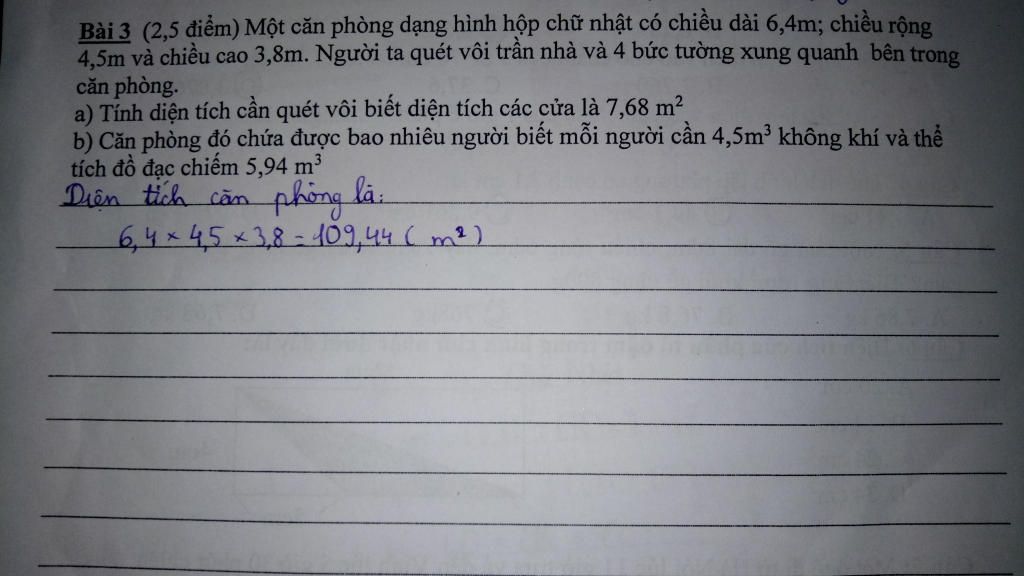 Bài 3 (2,5 điểm) Một căn phòng dạng hình hộp chữ nhật có chiều dài 6,4m; chiều rộng
4,5m và chiều cao 3,8m. Người ta quét vôi trần nhà và 4 bức tường xung quanh bên trong
căn phòng.
a) Tính diện tích cần quét vôi biết diện tích các cửa là 7,68 m²
b) Căn phòng đó chứa được bao nhiêu người biết mỗi người cần 4,5m³ không khí và thể
tích đồ đạc chiếm 5,94 m³
Diện tích căn phòng là:
6,4 × 4,5 × 3,8 = 109,44 ( m²)